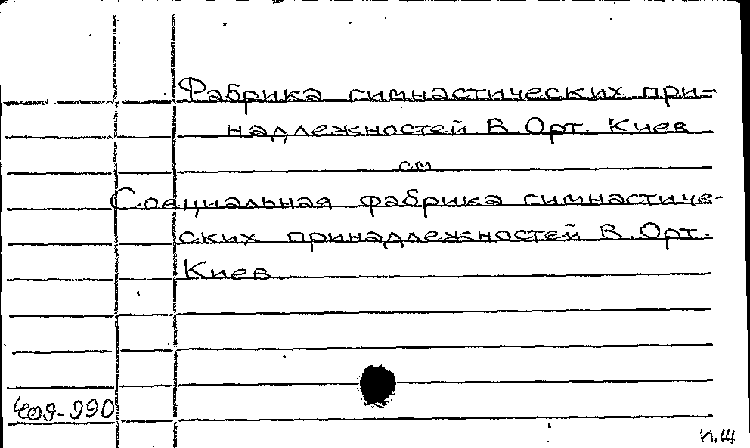 Фабрика гимнастических при-
надлежностей В. Орт. Киев
см
Социальная фабрика гимнастиче-
ских принадлежностей В. Орт.
Киев
409-990